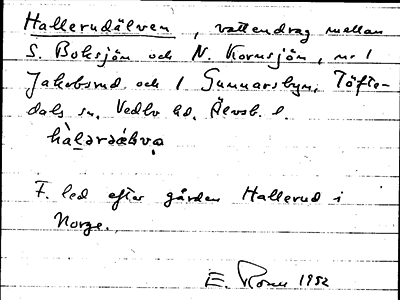 Hallerudälven, vattendrag mellan
S. Boksjön och N. Kornsjön, n. l
Jakobsrud och l Gunnarsbyn, Töfte-
dals sn, Vedbo hd, Älvsb. l.
hàləräɫva
F. led efter gården Hallerud i
Norge.
E. 1952